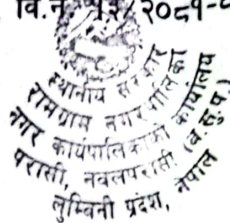 वि.नं. १३/२०८१-८
स्थानीय सरकार
रामग्राम नगरपालिका
नगर कार्यपालिकाको कार्यालय
परासी, नवलपरासी (ब.सु.प.)
लुम्बिनी प्रदेश, नेपाल